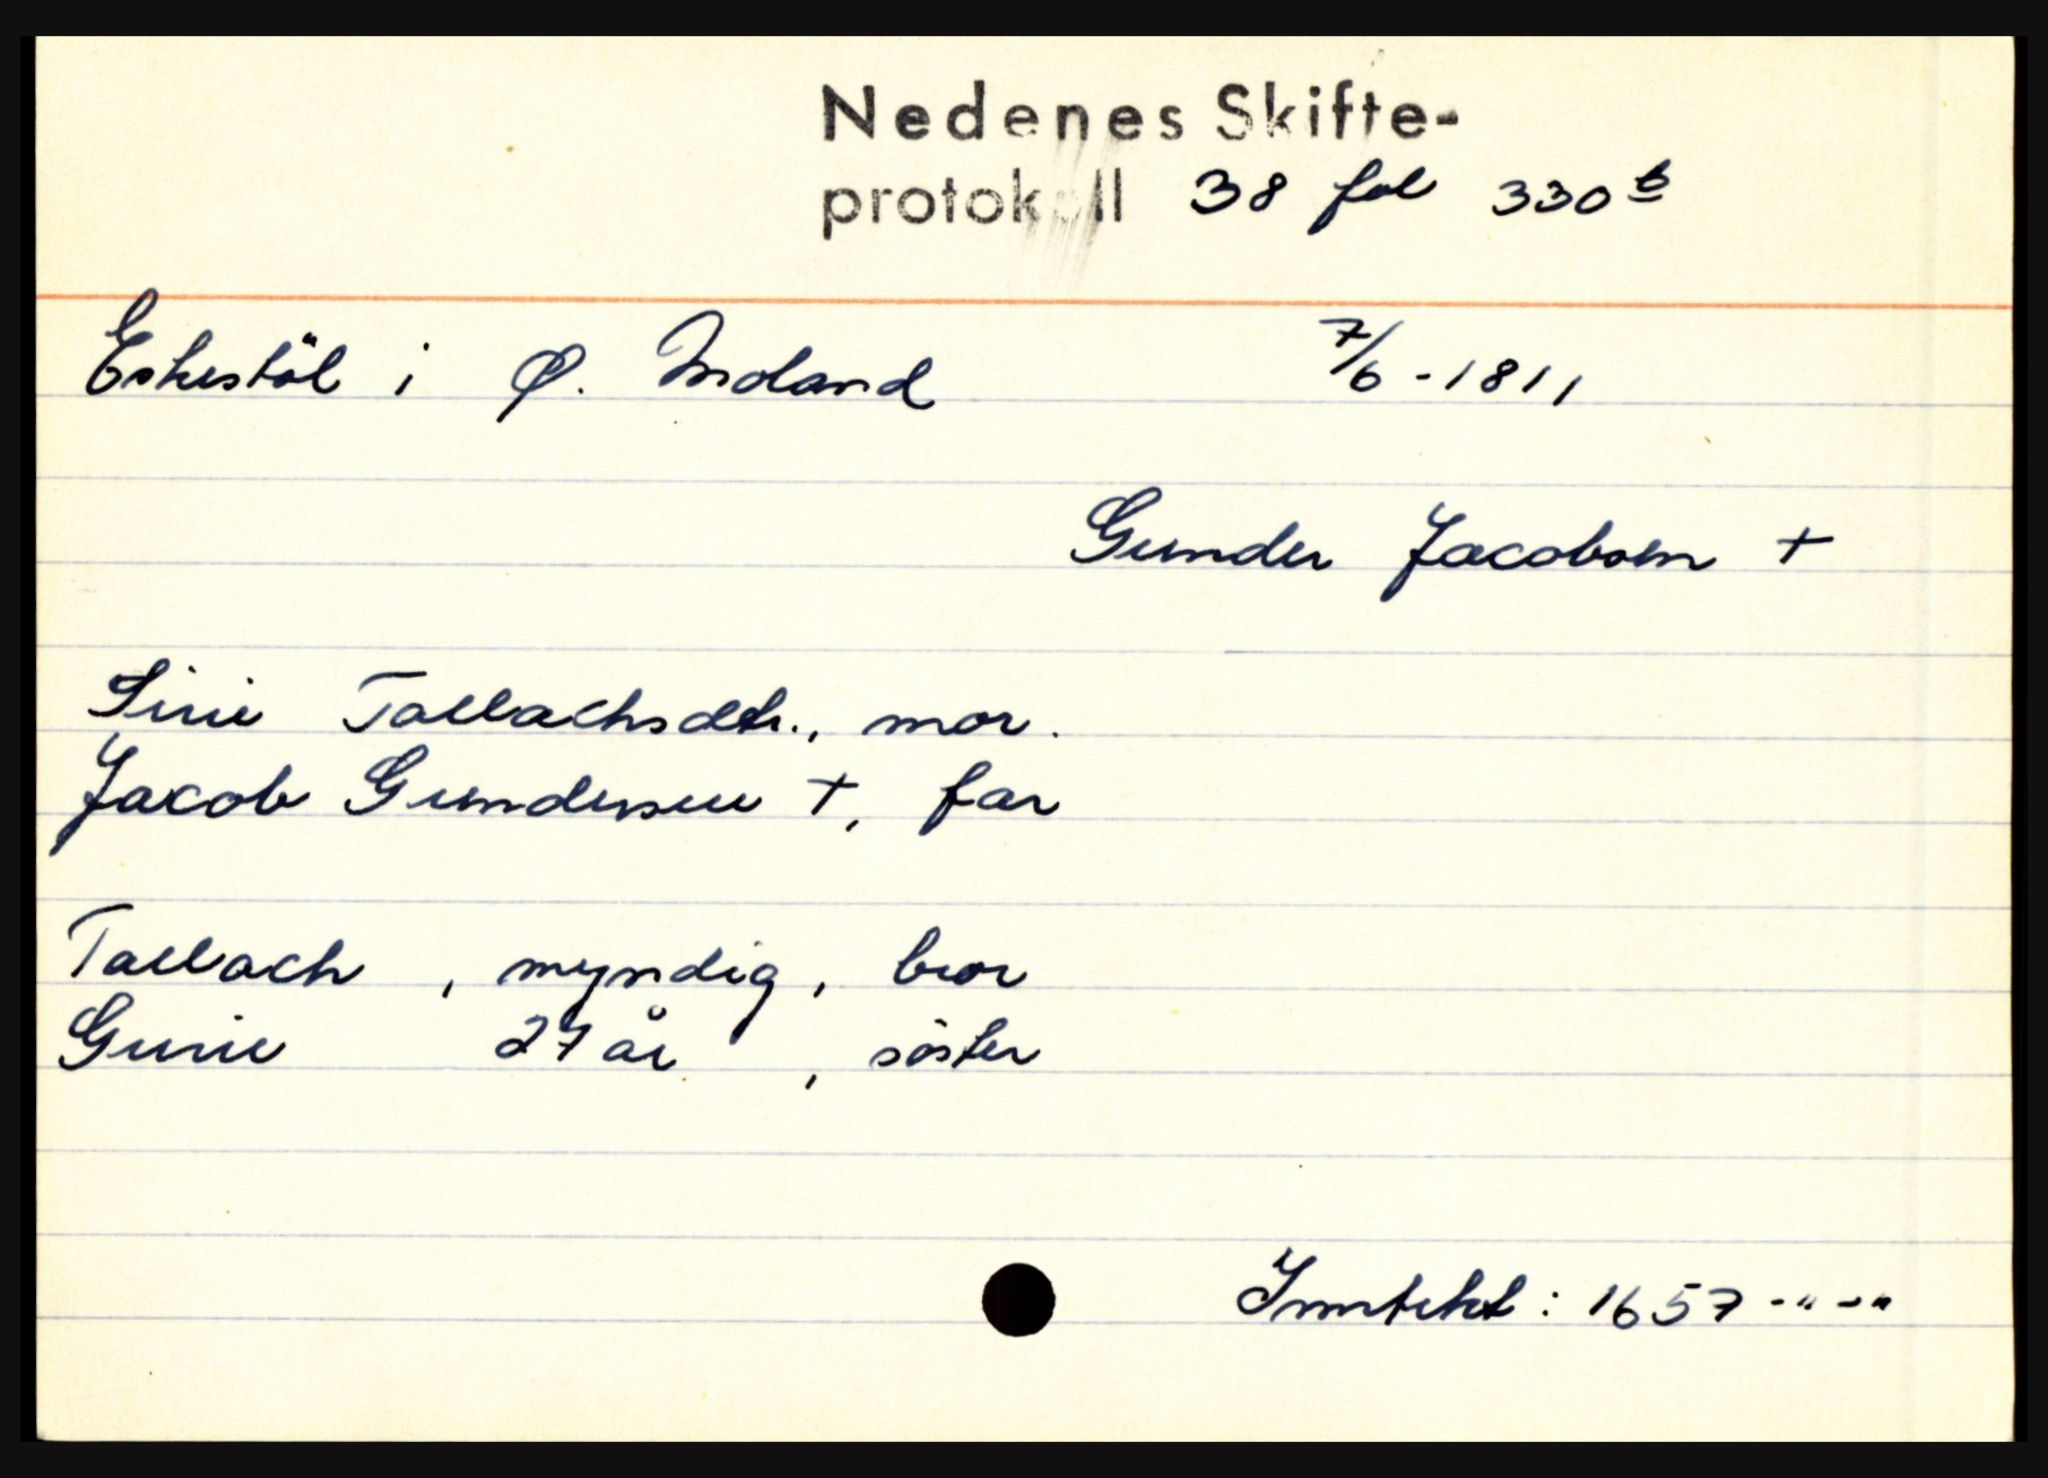 Nedenes Skifte-
protokoll 38 fol 330 b
Eskestöl i Ø. Moland 7/6 - 1811
Gunder Jacobsen +
Sirie Tallachsdtr., mor.
Jacob Gundersen +, far
Tallach , myndig, bror
Gurie 27 år , söster
Inntekt : 1657 -"-"